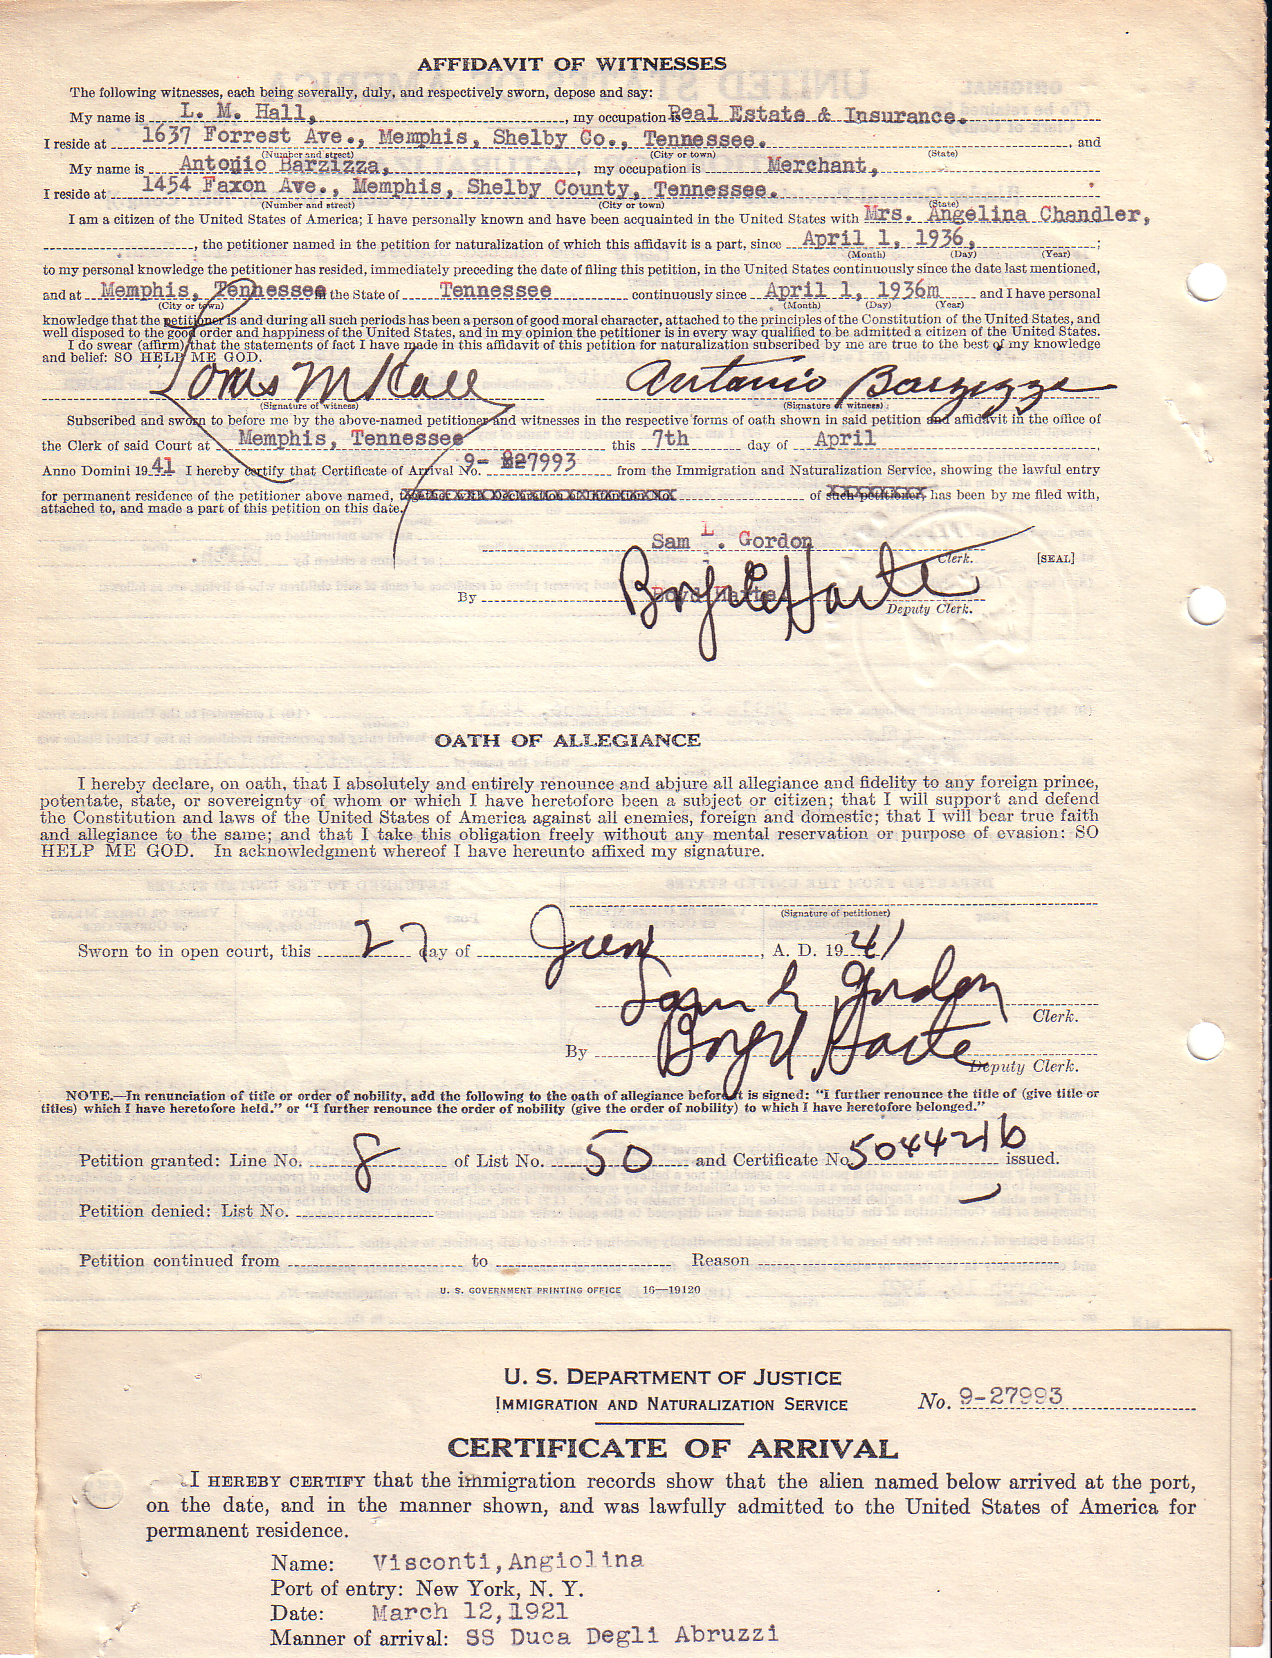 AFFIDAVIT OF WITNESSES
The following witnesses, each being severally, duly, and respectively sworn, depose and say:
My name is L. M. Hall, , my occupation is Real Estate & Insurance.
I reside at 1637 Forrest Ave., Memphis, Shelby Co., Tennessee. , and
(Number and street) (City or town) (State)
My name is Antonio Barzizza, , my occupation is Merchant,
I reside at 1454 Faxon Ave., Memphis, Shelby County, Tennessee.
(Number and street) (City or town) (State)
I am a citizen of the United States of America; I have personally known and have been acquainted in the United States with Mrs. Angelina Chandler,
, the petitioner named in the petition for naturalization of which this affidavit is a part, since April 1, 1936, ;
(Month) (Day) (Year)
to my personal knowledge the petitioner has resided, immediately preceding the date of filing this petition, in the United States continuously since the date last mentioned,
and at Memphis, Tennessee in the State of Tennessee continuously since April 1, 1936m and I have personal
(City or town) (Month) (Day) (Year)
knowledge that the petitioner is and during all such periods has been a person of good moral character, attached to the principles of the Constitution of the United States, and
well disposed to the good order and happiness of the United States, and in my opinion the petitioner is in every way qualified to be admitted a citizen of the United States.
I do swear (affirm) that the statements of fact I have made in this affidavit of this petition for naturalization subscribed by me are true to the best of my knowledge
and belief: SO HELP ME GOD.
M Hall Antonio Barzizza
(Signature of witness) (Signature of witness)
Subscribed and sworn to before me by the above-named petitioner and witnesses in the respective forms of oath shown in said petition and affidavit in the office of
the Clerk of said Court at Memphis, Tennessee this 7th day of April ,
Anno Domini 19 41 I hereby certify that Certificate of Arrival No. 9- 27993 from the Immigration and Naturalization Service, showing the lawful entry
for permanent residence of the petitioner above named, together with Declaration of Intention No. of such petitioner, has been by me filed with,
attached to, and made a part of this petition on this date.
Sam L. Gordon
Clerk. [SEAL]
By Boyd Harte
Deputy Clerk.
OATH OF ALLEGIANCE
I hereby declare, on oath, that I absolutely and entirely renounce and abjure all allegiance and fidelity to any foreign prince,
potentate, state, or sovereignty of whom or which I have heretofore been a subject or citizen; that I will support and defend
the Constitution and laws of the United States of America against all enemies, foreign and domestic; that I will bear true faith
and allegiance to the same; and that I take this obligation freely without any mental reservation or purpose of evasion: SO
HELP ME GOD. In acknowledgment whereof I have hereunto affixed my signature.
(Signature of petitioner)
Sworn to in open court, this 27 day of June , A. D. 19 41
Sam L Gordon
Clerk.
By Boyd Harte
Deputy Clerk.
NOTE.—In renunciation of title or order of nobility, add the following to the oath of allegiance before it is signed: "I further renounce the title of (give title or
titles) which I have heretofore held." or "I further renounce the order of nobility (give the order of nobility) to which I have heretofore belonged."
Petition granted: Line No. 8 of List No. 50 and Certificate No. 5044216 issued.
Petition denied: List No.
Petition continued from to Reason
U. S. GOVERNMENT PRINTING OFFICE 16—19120
U. S. DEPARTMENT OF JUSTICE
IMMIGRATION AND NATURALIZATION SERVICE
No. 9-27993
CERTIFICATE OF ARRIVAL
I HEREBY CERTIFY that the immigration records show that the alien named below arrived at the port,
on the date, and in the manner shown, and was lawfully admitted to the United States of America for
permanent residence.
Name: Visconti, Angiolina
Port of entry: New York, N. Y.
Date: March 12, 1921
Manner of arrival: SS Duca Degli Abruzzi